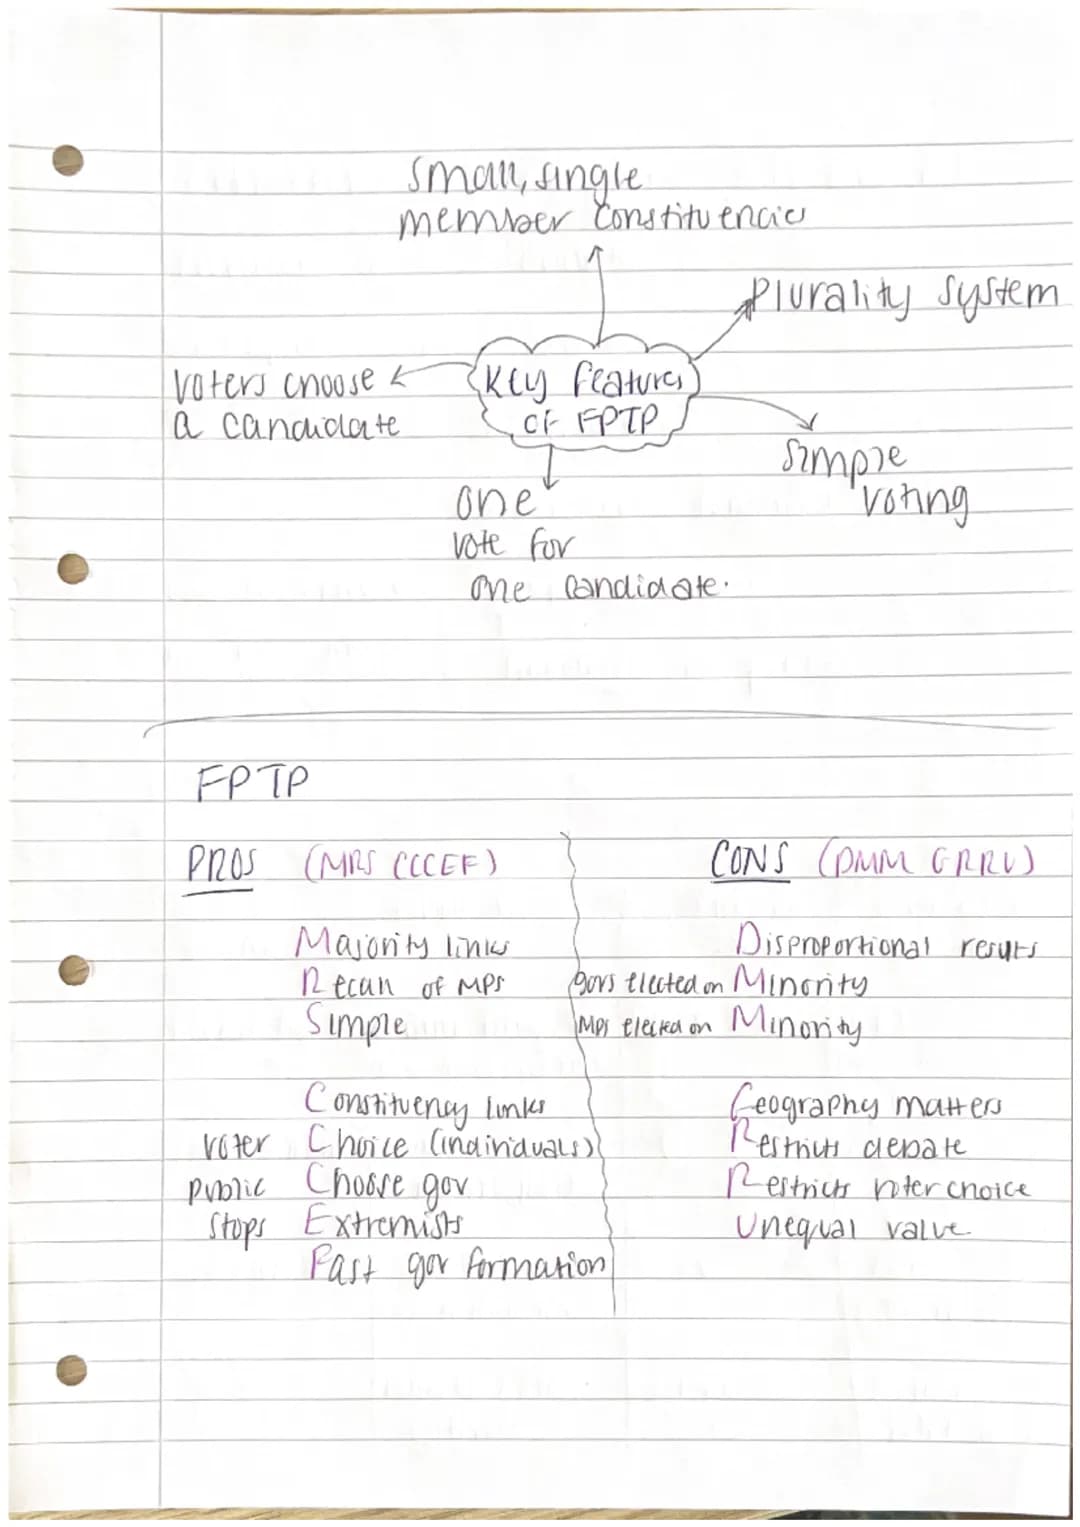 Small, single
member Constituencies
Plurality System
Voters choose
a candidate
Key features
of FPTP
Simple
voting
one
vote for
one candidate.
FPTP
PROS (MRS CCCEF)
CONS (DMM GRRU)
Majority links
Disproportional results
Recall of MPs
govs elected on Minority
Simple
MPs elected on Minority
Constituency links
Geography matters
voter Choice (individuals)
Restricts debate
public Choose gov
Restricts voter choice
Stops Extremists
Unequal value
Fast gov formation